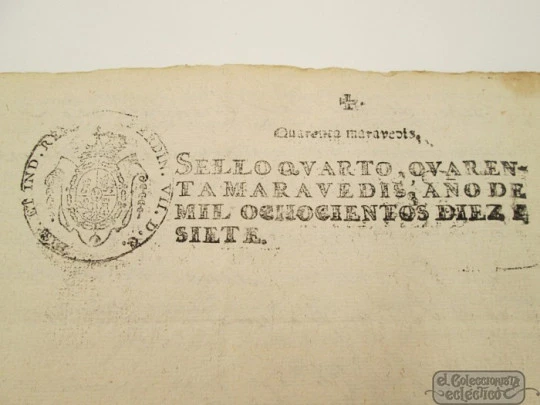 Quarenta maravedis.
SELLO QVARTO, QVAREN-
TA MARAVEDIS, AÑO DE
MIL OCHOCIENTOS DIEZ E
SIETE.
ET IND. RE DIN. VII. D. G.
el Coleccionista
ecléctico